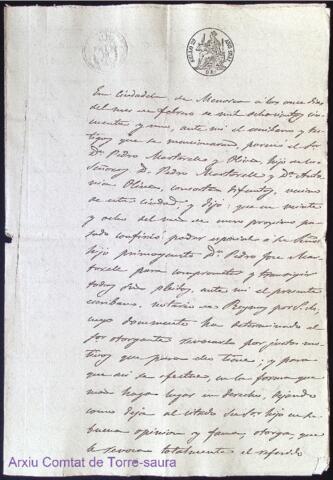 En Ciudadela de Menorca á los once dias
del mes de febrero de mil ochocientos cin-
cuenta y uno, ante mi el escribano y tes-
tigos que se mencionarán, pareció el Sor
Dn. Pedro Martorell y Olives, hijo de los
Señores D. Pedro Martorell y Da. Anto-
nia Olives, consortes difuntos, vecino
de esta ciudad, y dijo; que en veinte
y ocho del mes de enero proximo pa-
sado confirió poder especial á su Señor
hijo primogenito Dn. Pedro José Mar-
torell para comprometer y transigir
todos sus pleitos, ante mi el presente
escribano, notario de Reynos
cuyo documento ha determinado el
Sor otorgante revocarle por justos mo-
tivos que para ello tiene; y para
que asi se efectue, en la forma que
mas haya lugar en derecho, dejando
como deja al citado Señor hijo en su
buena opinion y fama, otorga, que
le revoca totalmente el referido
Arxiu Comtat de Torre-saura